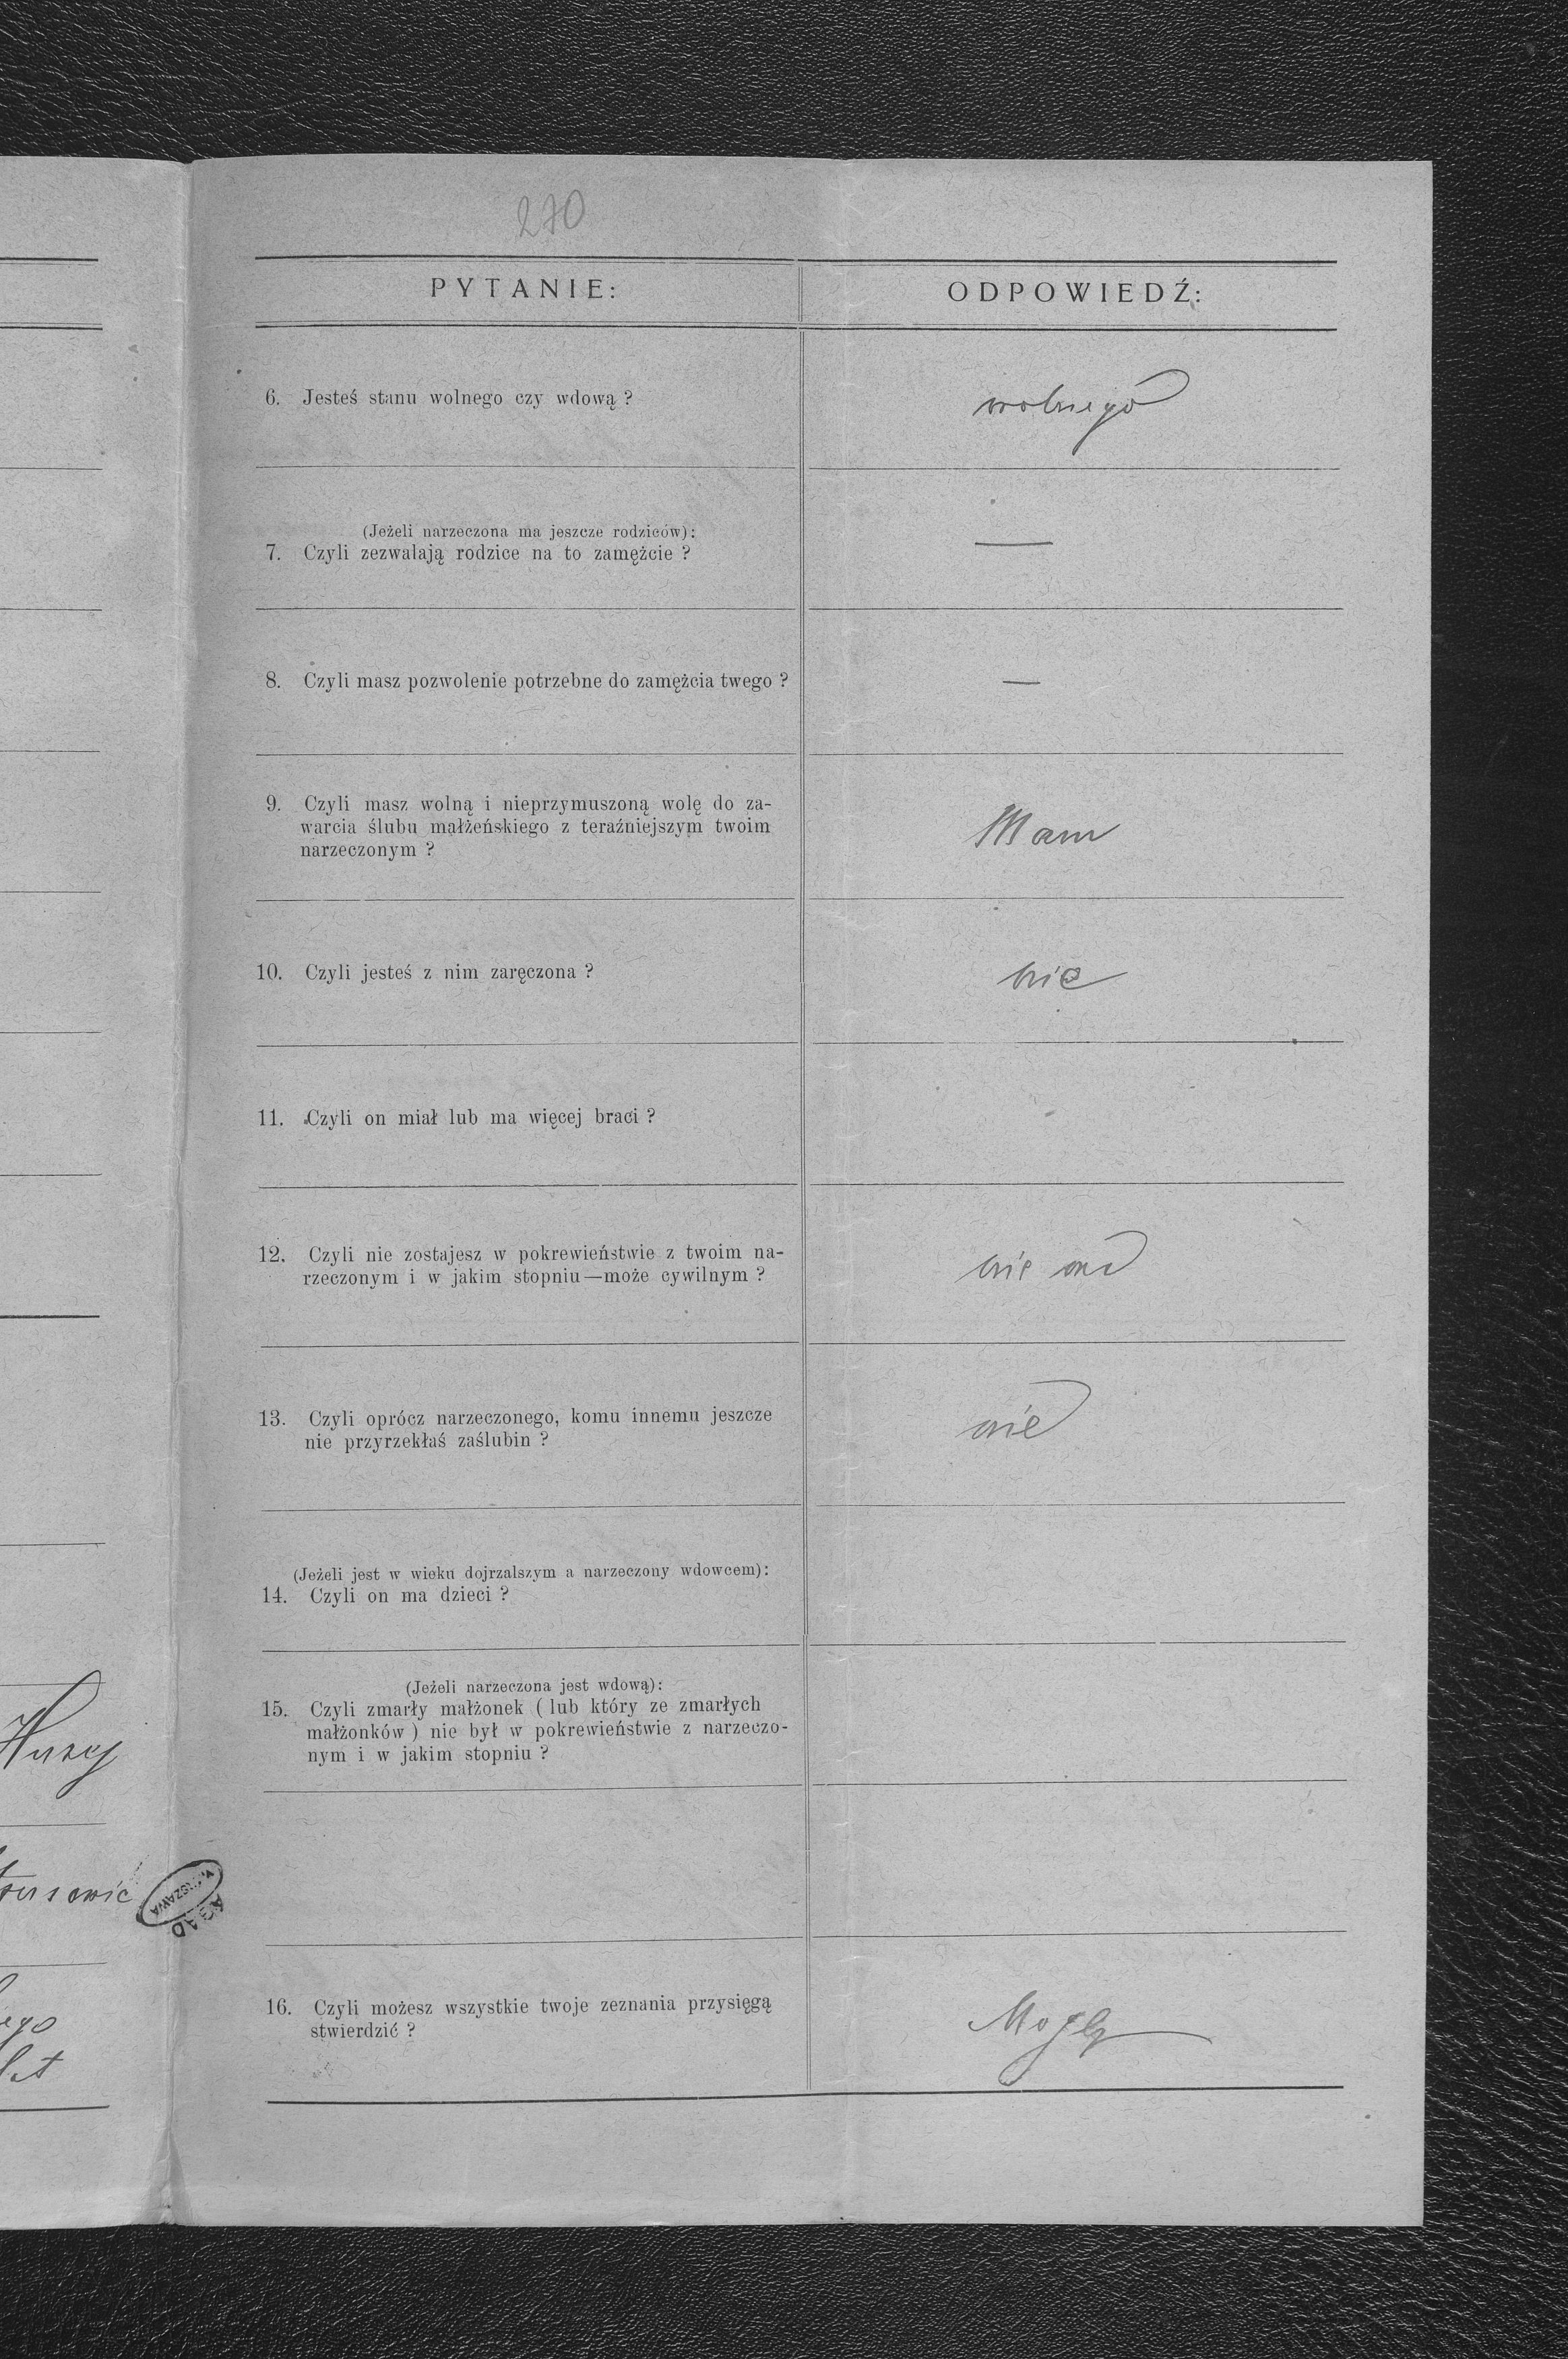 270
PYTANIE:
ODPOWIEDŹ:
6. Jesteś stanu wolnego czy wdową ?
wolnego
(Jeżeli narzeczona ma jeszcze rodziców):
7. Czyli zezwalają rodzice na to zamężcie ?
—
8. Czyli masz pozwolenie potrzebne do zamężcia twego ?
—
9. Czyli masz wolną i nieprzymuszoną wolę do za-
warcia ślubu małżeńskiego z teraźniejszym twoim
narzeczonym ?
Mam
10. Czyli jesteś z nim zaręczona ?
nie
11. Czyli on miał lub ma więcej braci ?
12. Czyli nie zostajesz w pokrewieństwie z twoim na-
rzeczonym i w jakim stopniu—może cywilnym ?
nie
13. Czyli oprócz narzeczonego, komu innemu jeszcze
nie przyrzekłaś zaślubin ?
nie
(Jeżeli jest w wieku dojrzalszym a narzeczony wdowcem):
14. Czyli on ma dzieci ?
(Jeżeli narzeczona jest wdową):
15. Czyli zmarły małżonek ( lub który ze zmarłych
małżonków ) nie był w pokrewieństwie z narzeczo-
nym i w jakim stopniu ?
AGAD
WARSZAWA
16. Czyli możesz wszystkie twoje zeznania przysięgą
stwierdzić ?